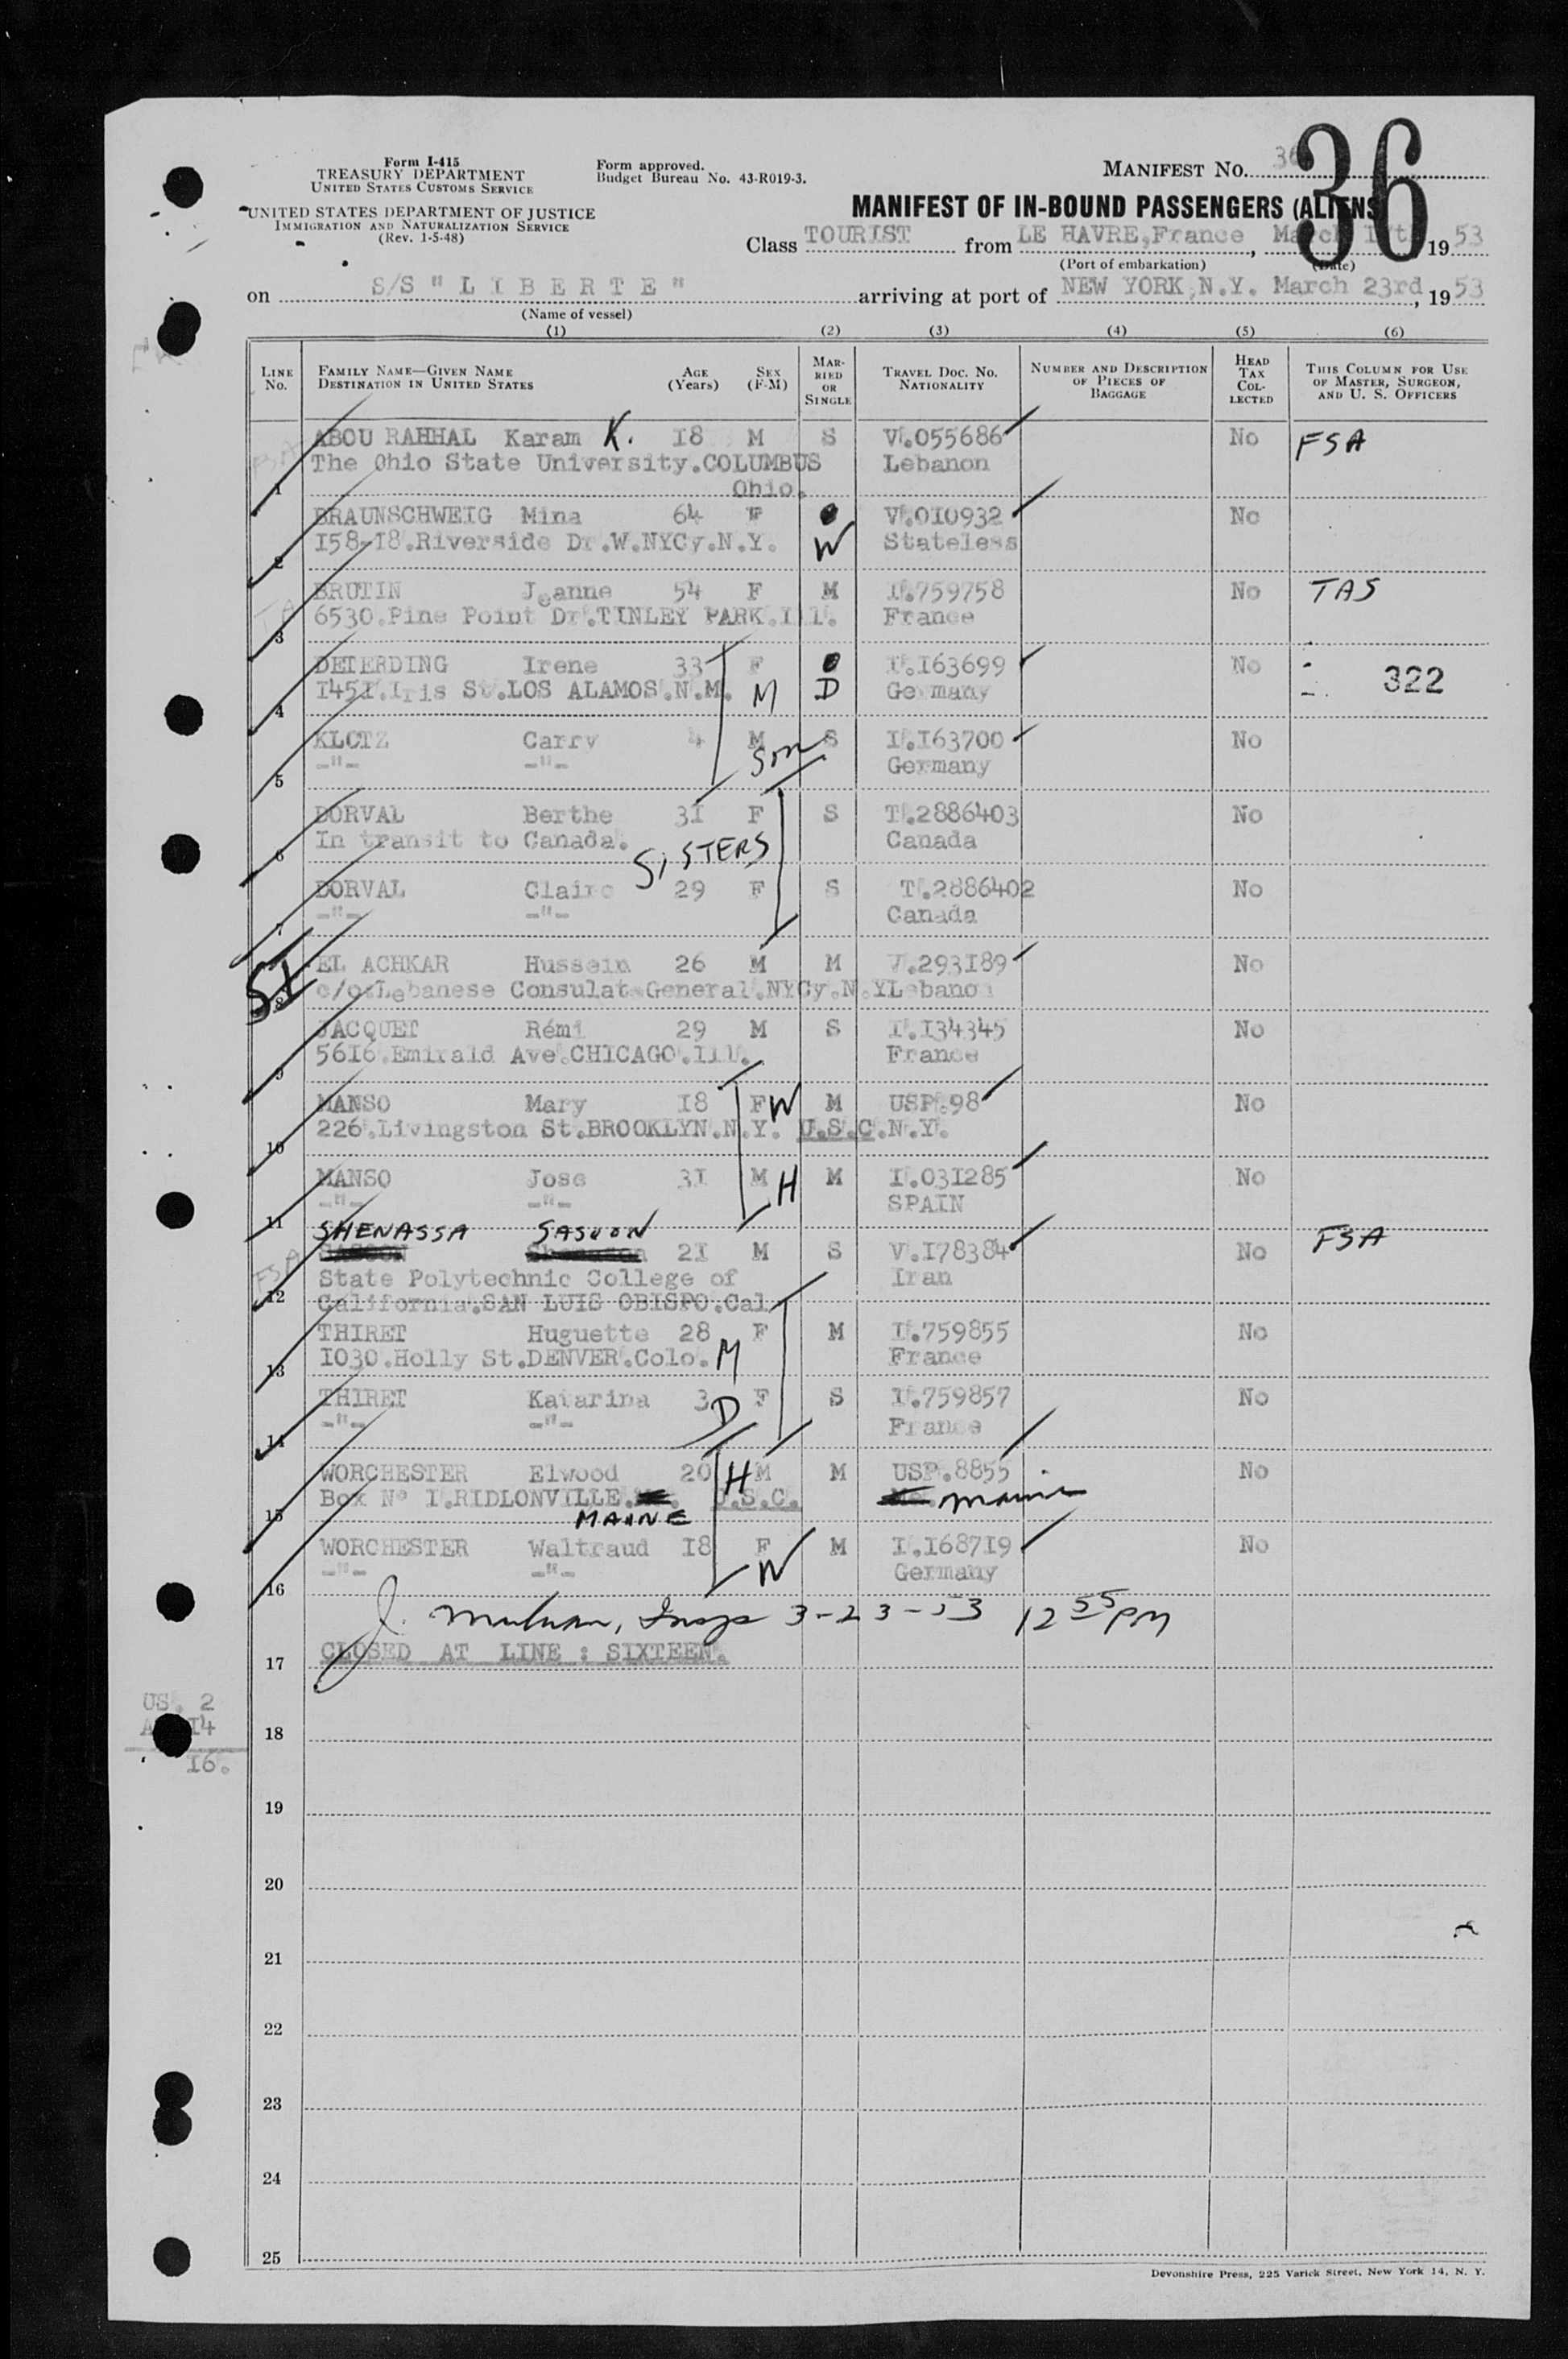 Form I-415
TREASURY DEPARTMENT
UNITED STATES CUSTOMS SERVICE
UNITED STATES DEPARTMENT OF JUSTICE
IMMIGRATION AND NATURALIZATION SERVICE
(Rev. 1-5-48)
Form approved.
Budget Bureau No. 43-R019-3.
MANIFEST No. 36
36
MANIFEST OF IN-BOUND PASSENGERS (ALIENS
Class TOURIST from LE HAVRE,France, March 1953
(Port of embarkation) (Date)
on S/S " L I B E R T E " arriving at port of NEW YORK,N.Y. March 23rd, 1953
(Name of vessel)
(1) (2) (3) (4) (5) (6)
LINE No. FAMILY NAME—GIVEN NAME DESTINATION IN UNITED STATES AGE (Years) SEX (F-M) MARRIED OR SINGLE TRAVEL DOC. No. NATIONALITY NUMBER AND DESCRIPTION OF PIECES OF BAGGAGE HEAD TAX COLLECTED THIS COLUMN FOR USE OF MASTER, SURGEON, AND U. S. OFFICERS
ABOU RAHHAL Karam K. 18 M S V.055686 No FSA
The Ohio State University.COLUMBUS Lebanon
1 Ohio.
BRAUNSCHWEIG Mina 64 F V.010932 No
2 158-18.Riverside Dr.W.NYCy.N.Y. W Stateless
BRUTIN Jeanne 54 F M I.759758 No TAS
3 6530.Pine Point Dr.TINLEY PARK.Ill. France
DETERDING Irene 33 F I.163699 No
4 1451.Iris St.LOS ALAMOS.N.M. M D Germany 322
KLOTZ Carry 4 M S I.163700 No
5 -"- -"- Son Germany
DORVAL Berthe 31 F S T.2886403 No
6 In transit to Canada. Canada
SISTERS
DORVAL Claire 29 F S T.2886402 No
7 -"- -"- Canada
SI
EL ACHKAR Hussein 26 M M V.293189 No
8 c/o.Lebanese Consulat General.NYCy.N.Y Lebanon
JACQUET Rémi 29 M S I.134345 No
9 5616.Emirald Ave.CHICAGO.Ill. France
MANSO Mary 18 F W M USP.98 No
10 226.Livingston St.BROOKLYN.N.Y. U.S.C. N.Y.
MANSO Jose 31 M H M I.031285 No
11 -"- -"- SPAIN
SHENASSA SASOON
21 M S V.178384 No FSA
State Polytechnic College of Iran
12 California.SAN LUIS OBISPO.Cal.
THIRET Huguette 28 F M I.759855 No
13 1030.Holly St.DENVER.Colo. M France
THIRET Katarina 3 F S I.759857 No
14 -"- -"- D France
WORCHESTER Elwood 20 H M M USP.8855 No
15 Box N° I.RIDLONVILLE. U.S.C. Maine
MAINE
WORCHESTER Waltraud 18 F M I.168719 No
16 -"- -"- W Germany
3-23-53 12 55 PM
17 CLOSED AT LINE : SIXTEEN.
US. 2
14
16.
18
19
20
21
22
23
24
25
Devonshire Press, 225 Varick Street, New York 14, N. Y.